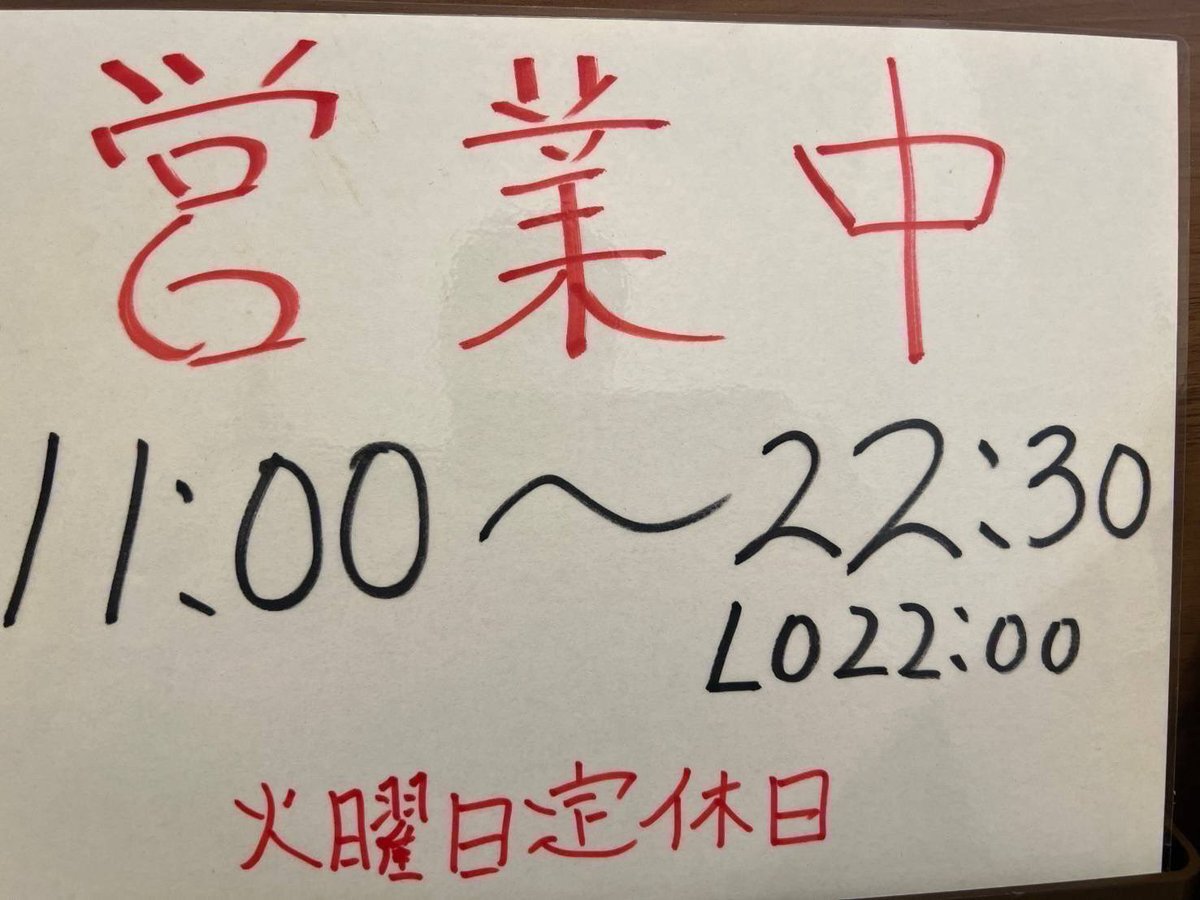 営業中
11:00～22:30
LO22:00
火曜日定休日